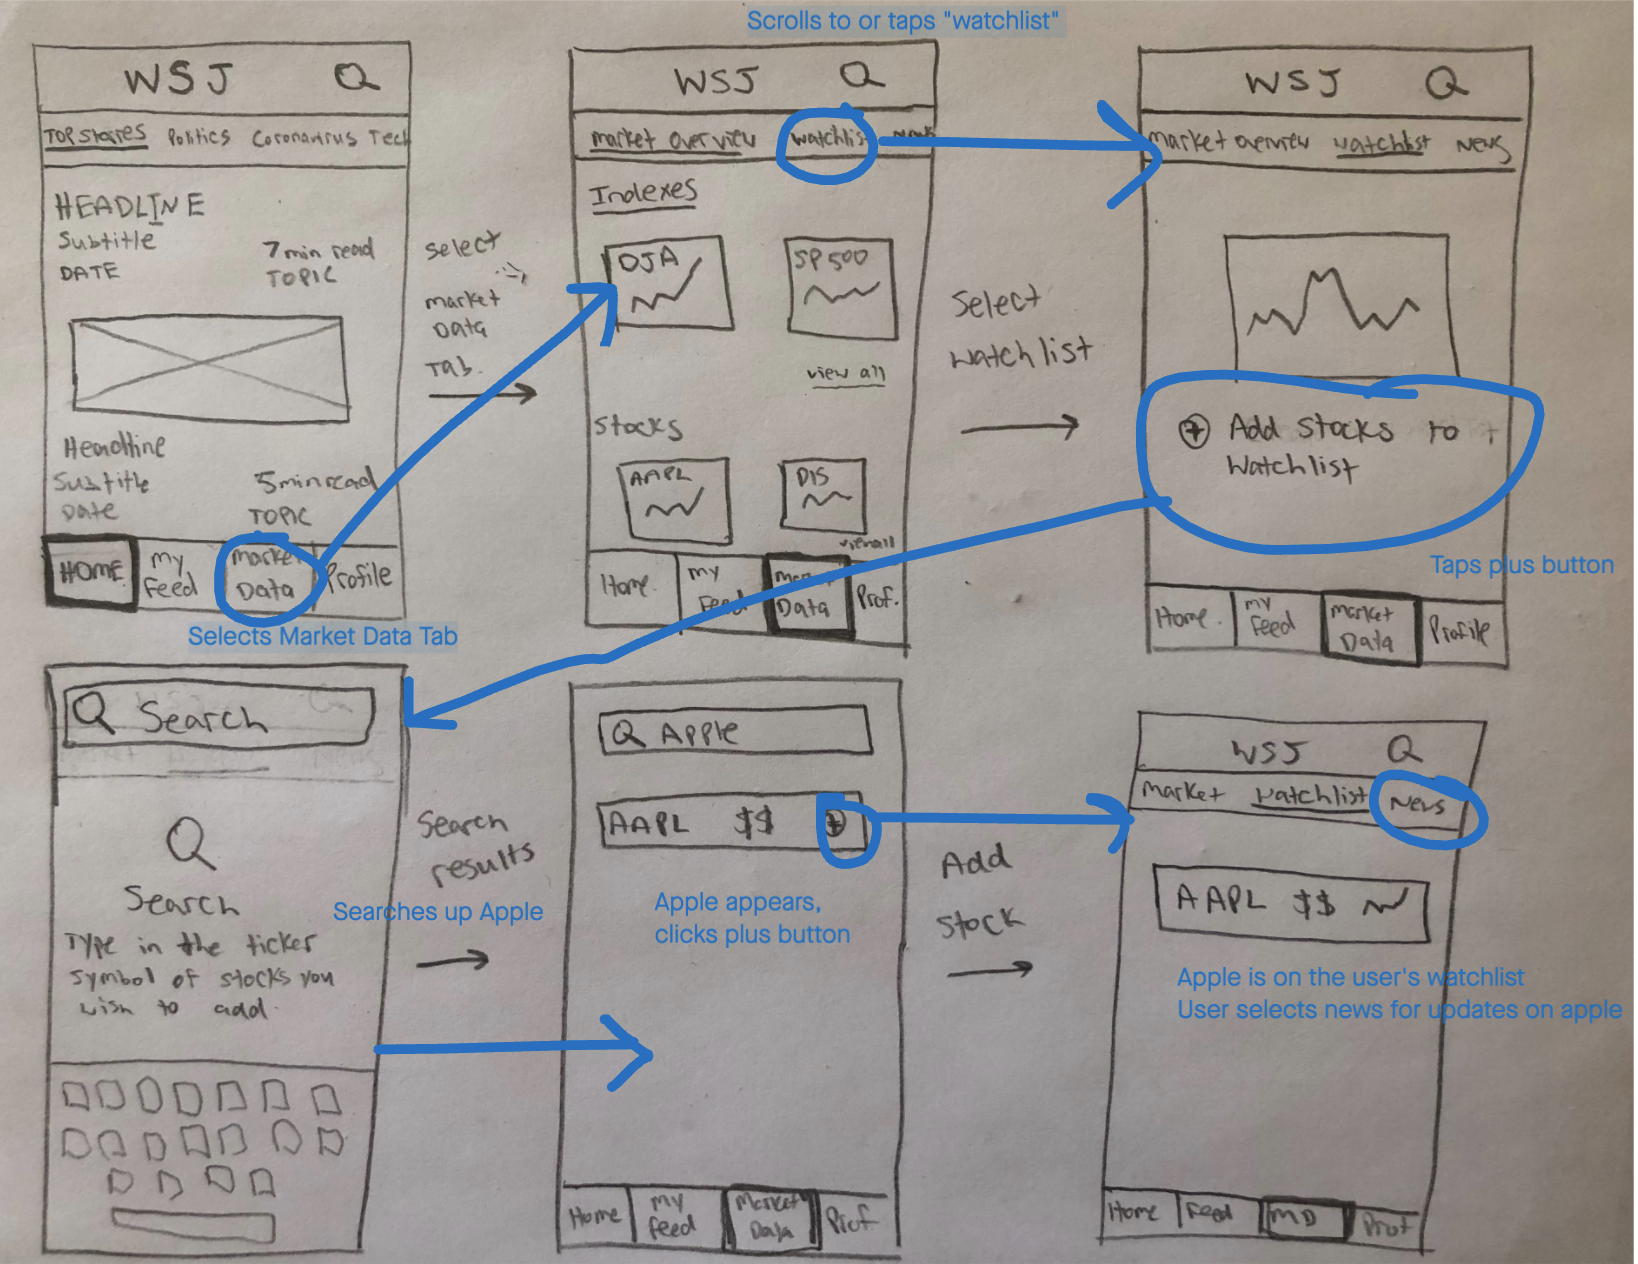 Scrolls to or taps "watchlist"
WSJ
TOP Stories Politics Coronavirus Tech
HEADLINE
Subtitle
DATE
7 min read
TOPIC
Headline
Subtitle
Date
5 min read
TOPIC
HOME
My
Feed
Market
Data
Profile
Selects Market Data Tab
Select
market
Data
Tab.
WSJ
Market Overview Watchlist News
Indexes
DJA
SP 500
view all
Stocks
AAPL
DIS
view all
Home.
My
Feed
Market
Data
Prof.
Select
Watchlist
WSJ
Market Overview Watchlist News
+ Add Stocks to
Watchlist
Taps plus button
Home.
My
Feed
Market
Data
Profile
Search
Search
Type in the ticker
Symbol of stocks you
wish to add.
Search
results
Searches up Apple
Apple
AAPL $$ +
Apple appears,
clicks plus button
Home
My
Feed
Market
Data
Prof.
Add
Stock
WSJ
Market Watchlist News
AAPL $$
Apple is on the user's watchlist
User selects news for updates on apple
Home
Feed
MD
Prof